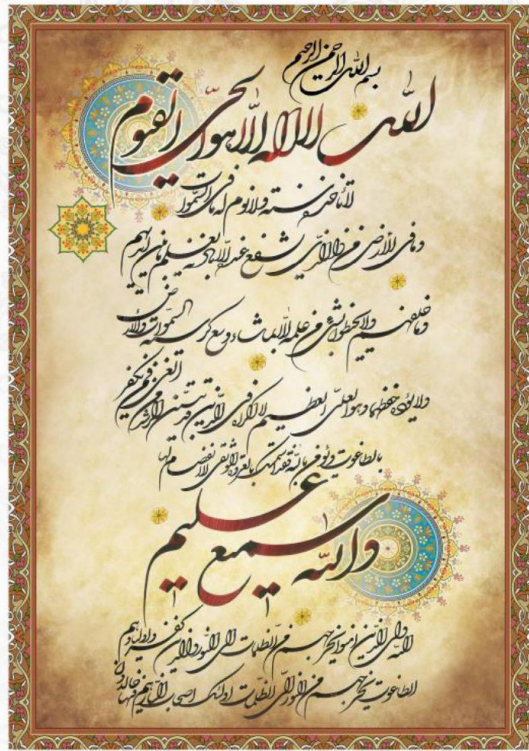 بسم الله الرحمن الرحیم
الله لا اله الا هو الحی القیوم
لا تأخذه سنة ولا نوم له ما فی السموات
وما فی الارض من ذا الذی یشفع عنده الا باذنه یعلم ما بین ایدیهم
وما خلفهم ولا یحیطون بشیء من علمه الا بما شاء وسع کرسیه السموات والارض
ولا یؤده حفظهما وهو العلی العظیم لا اکراه فی الدین قد تبین الرشد من الغی فمن یکفر
بالطاغوت ویؤمن بالله فقد استمسک بالعروة الوثقی لا انفصام لها
والله سمیع علیم
الله ولی الذین آمنوا یخرجهم من الظلمات الی النور والذین کفروا اولیاؤهم
الطاغوت یخرجونهم من النور الی الظلمات اولئک اصحاب النار هم فیها خالدون